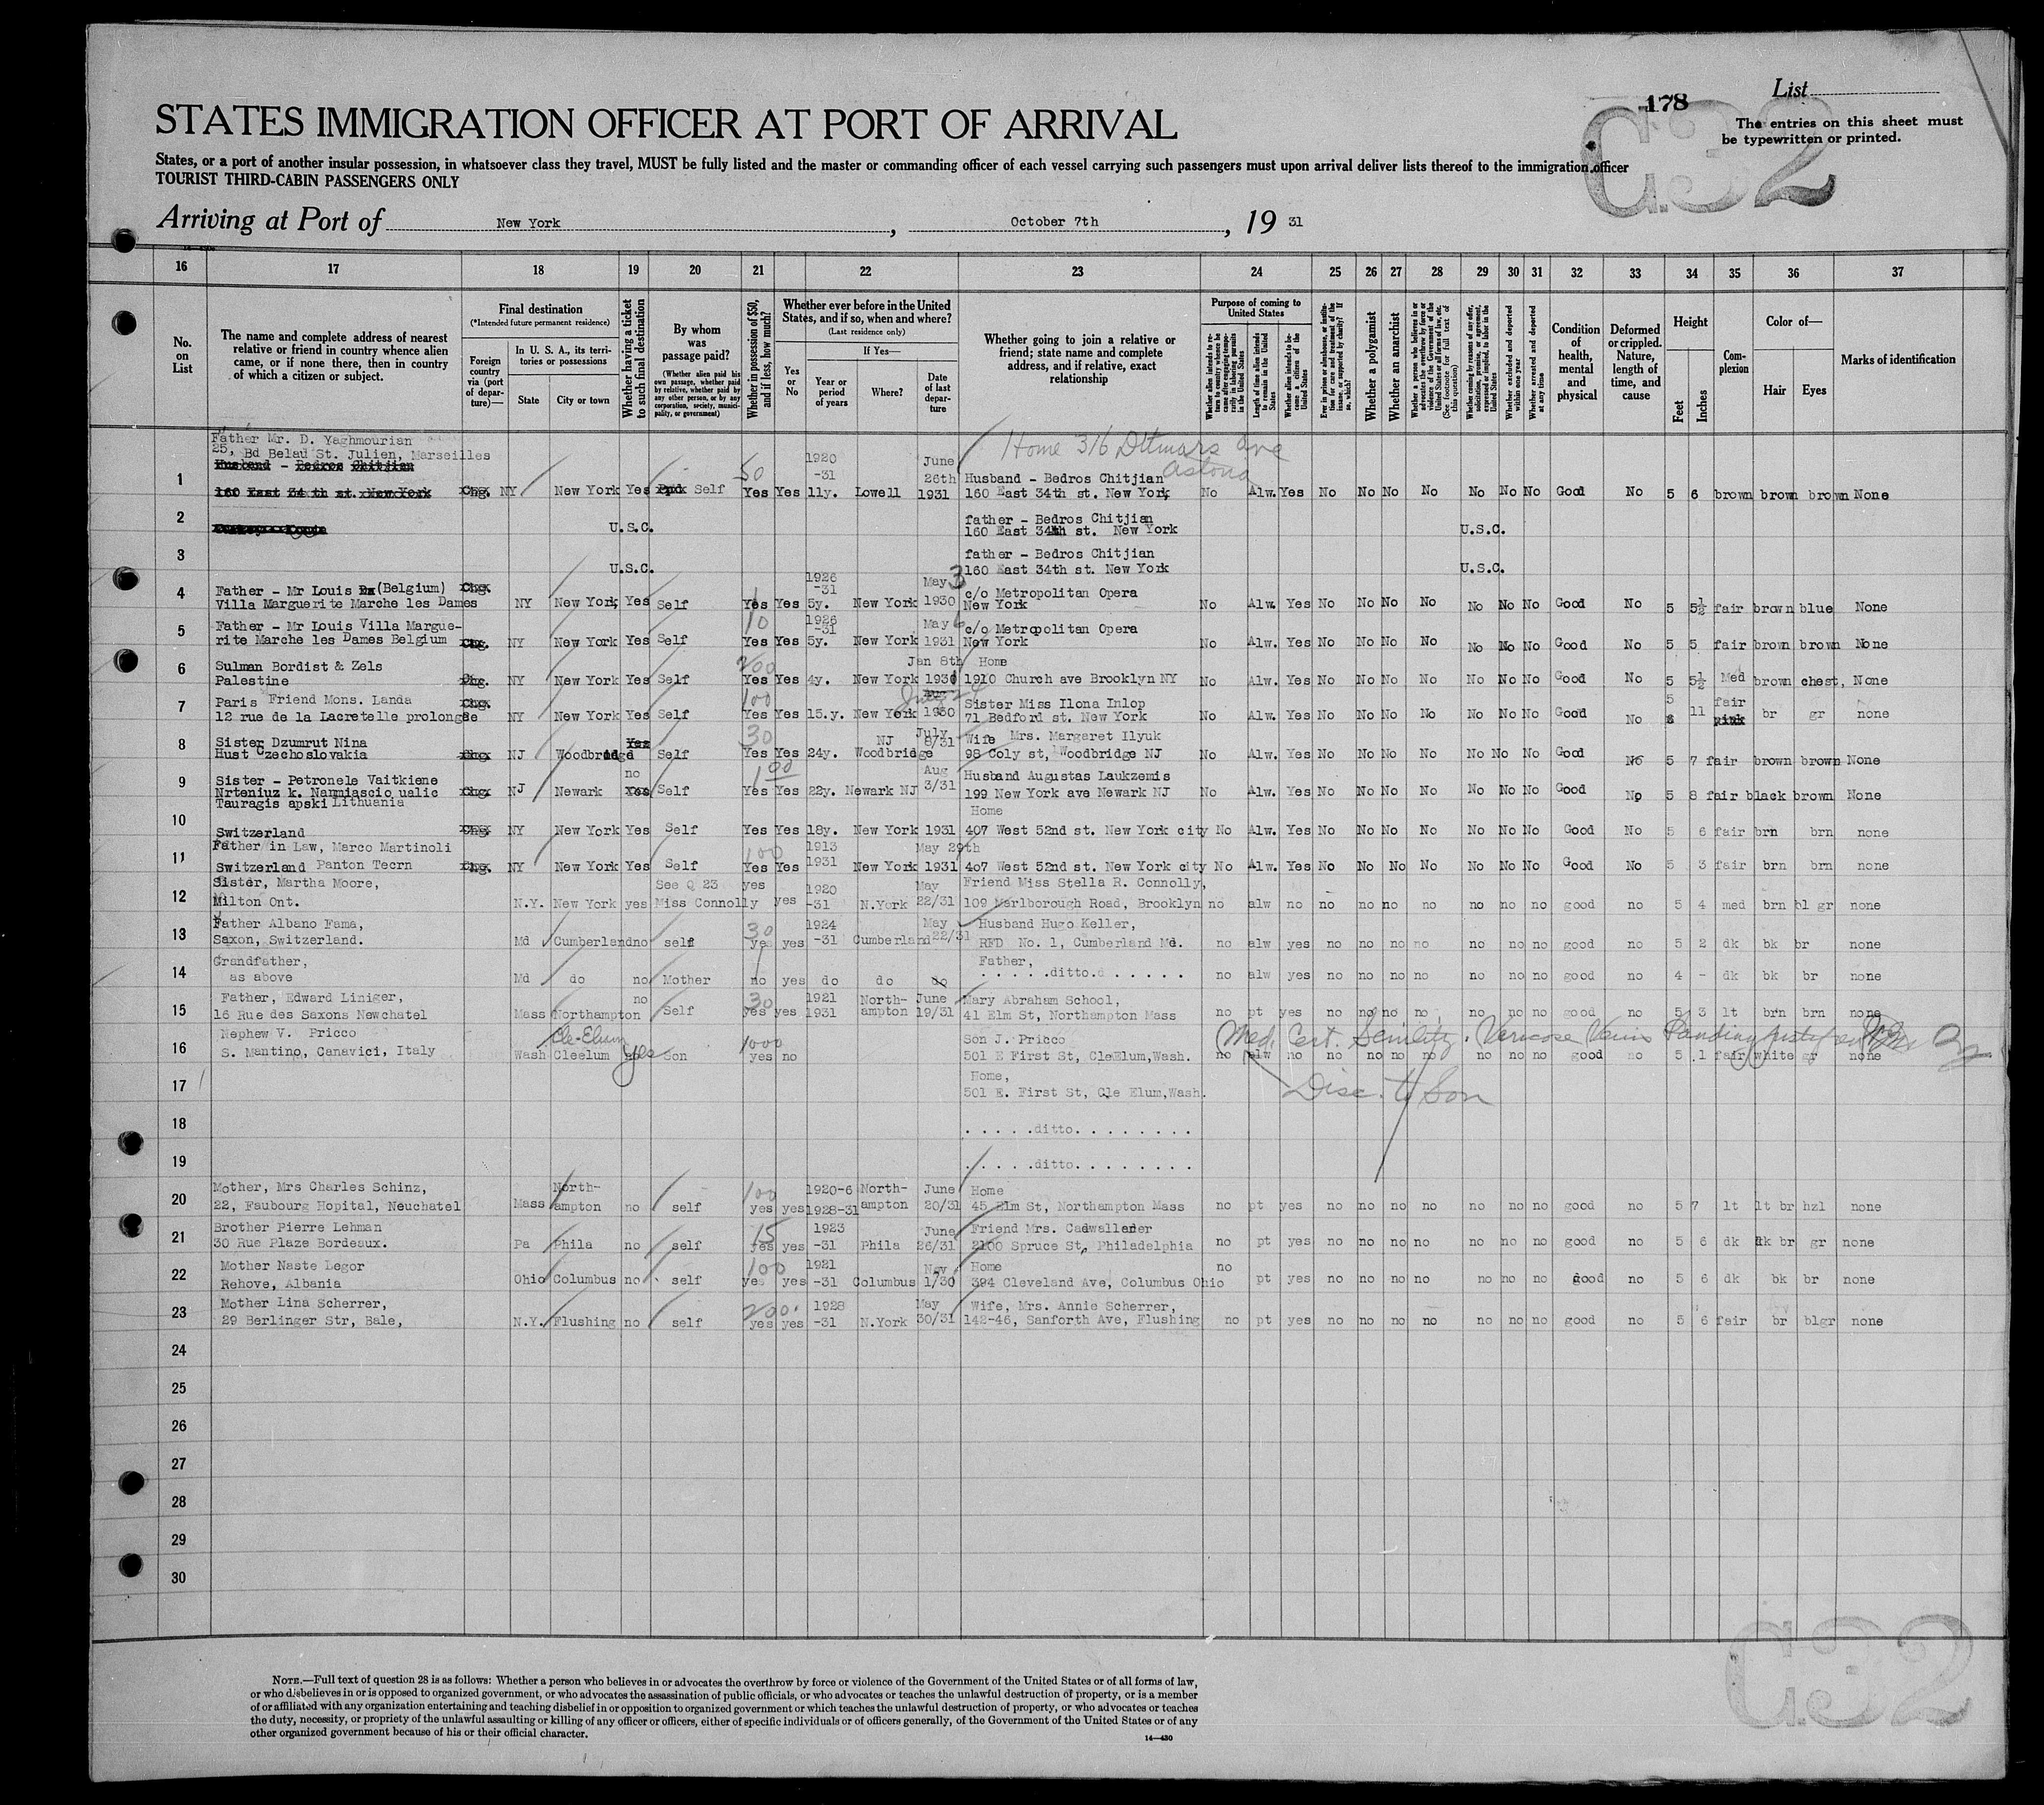 List
178
G32
The entries on this sheet must
be typewritten or printed.
STATES IMMIGRATION OFFICER AT PORT OF ARRIVAL
States, or a port of another insular possession, in whatsoever class they travel, MUST be fully listed and the master or commanding officer of each vessel carrying such passengers must upon arrival deliver lists thereof to the immigration officer
TOURIST THIRD-CABIN PASSENGERS ONLY
Arriving at Port of New York, October 7th, 19 31
16 17 18 19 20 21 22 23 24 25 26 27 28 29 30 31 32 33 34 35 36 37
No. on List
The name and complete address of nearest relative or friend in country whence alien came, or if none there, then in country of which a citizen or subject.
Final destination
(*Intended future permanent residence)
Foreign country via (port of departure)—
In U. S. A., its territories or possessions
State
City or town
Whether having a ticket to such final destination
By whom was passage paid?
(Whether alien paid his own passage, whether paid by relative, whether paid by any other person, or by any corporation, society, municipality, or government)
Whether in possession of $50, and if less, how much?
Whether ever before in the United States, and if so, when and where?
(Last residence only)
Yes or No
If Yes—
Year or period of years
Where?
Date of last departure
Whether going to join a relative or friend; state name and complete address, and if relative, exact relationship
Purpose of coming to United States
Whether alien intends to return to country whence he came after engaging temporarily in laboring pursuits in the United States
Length of time alien intends to remain in the United States
Whether alien intends to become a citizen of the United States
Ever in prison or almshouse, or institution for care and treatment of the insane, or supported by charity? If so, which?
Whether a polygamist
Whether an anarchist
Whether a person who believes in or advocates the overthrow by force or violence of the Government of the United States or all forms of law, etc. (See footnote for full text of this question)
Whether coming by reason of any offer, solicitation, promise, or agreement, expressed or implied, to labor in the United States
Whether excluded and deported within one year
Whether arrested and deported at any time
Condition of health, mental and physical
Deformed or crippled. Nature, length of time, and cause
Height
Feet
Inches
Complexion
Color of—
Hair
Eyes
Marks of identification
Father Mr. D. Yaghmourian
25, Bd Belau St. Julien, Marseilles
Husband - Bedros Chitjian
Home 316 Ditmars Ave
Astoria
1920 -31 June 26th
1 160 East 34 th st. New York NY New York Yes Self 50 Yes Yes 11y. Lowell 1931 Husband - Bedros Chitjian 160 East 34th st. New York No Alw. Yes No No No No No No No Good No 5 6 brown brown brown None
2 U.S.C. father - Bedros Chitjian 160 East 34th st. New York U.S.C.
3 U.S.C. father - Bedros Chitjian 160 East 34th st. New York U.S.C.
4 Father - Mr Louis (Belgium) Villa Marguerite Marche les Dames NY New York Yes Self Yes Yes 1926 -31 5y. New York May 3 1930 c/o Metropolitan Opera New York No Alw. Yes No No No No No No No Good No 5 5½ fair brown blue None
5 Father - Mr Louis Villa Marguerite Marche les Dames Belgium NY New York Yes Self 10 Yes Yes 1926 -31 5y. New York May 6 1931 c/o Metropolitan Opera New York No Alw. Yes No No No No No No No Good No 5 5 fair brown brown None
6 Sulman Bordist & Zels Palestine NY New York Yes Self 200 Yes Yes 4y. New York Jan 8th 1931 Home 1910 Church ave Brooklyn NY No Alw. Yes No No No No No No No Good No 5 5½ Med brown chest, None
7 Paris Friend Mons. Landa 12 rue de la Lacretelle prolongée NY New York Yes Self 100 Yes Yes 15.y. New York 1930 Sister Miss Ilona Inlop 71 Bedford st. New York No Alw. Yes No No No No No No No Good No 5 11 fair br gr none
8 Sister Dzumrut Nina Hust Czechoslovakia NJ Woodbridge Yes Self 30 Yes Yes 24y. NJ Woodbridge July 8/31 Wife Mrs. Margaret Ilyuk 98 Coly st, Woodbridge NJ No Alw. Yes No No No No No No No Good No 5 7 fair brown brown None
9 Sister - Petronele Vaitkiene Nrteniuz k. Nanmiascio ualic Tauragis apski Lithuania NJ Newark no Self 1 00 Yes Yes 22y. Newark NJ Aug 3/31 Husband Augustas Laukzemis 199 New York ave Newark NJ No Alw. Yes No No No No No No No Good No 5 8 fair black brown None
10 Switzerland NY New York Yes Self Yes Yes 18y. New York 1931 Home 407 West 52nd st. New York city No Alw. Yes No No No No No No No Good No 5 6 fair brn brn none
11 Father in Law, Marco Martinoli Switzerland Panton Tecrn NY New York Yes Self 100 Yes Yes 1913 1931 New York May 29th 1931 407 West 52nd st. New York city No Alw. Yes No No No No No No No Good No 5 3 fair brn brn none
12 Sister, Martha Moore, Milton Ont. N.Y. New York yes See Q 23 Miss Connolly yes yes 1920 -31 N.York May 22/31 Friend Miss Stella R. Connolly, 109 Marlborough Road, Brooklyn no alw no no no no no no no no good no 5 4 med brn bl gr none
13 Father Albano Fama, Saxon, Switzerland. Md Cumberland no self 30 yes yes 1924 -31 Cumberland May 22/31 Husband Hugo Keller, RFD No. 1, Cumberland Md. no alw yes no no no no no no no good no 5 2 dk bk br none
14 Grandfather, as above Md do no Mother no yes do do do Father, . . . . .ditto. . . . . . no alw yes no no no no no no no good no 4 - dk bk br none
15 Father, Edward Liniger, 16 Rue des Saxons Newchatel Mass Northampton no Self 30 yes yes 1921 1931 Northampton June 19/31 Mary Abraham School, 41 Elm St, Northampton Mass no pt yes no no no no no no no good no 5 3 lt brn brn none
16 Nephew V. Pricco S. Mantino, Canavici, Italy Wash Cle-Elum Cleelum yes Son 1000 yes no Son J. Pricco 501 E First St, CleElum, Wash. Med. Cert. Senility. Varicose Veins no alw no no no no no no no no good no 5 1 fair white gr none
17 Home, 501 E. First St, Cle Elum, Wash. Disc. to Son
18 . . . . .ditto. . . . . . . .
19 . . . . .ditto. . . . . . . .
20 Mother, Mrs Charles Schinz, 22, Faubourg Hopital, Neuchatel Mass Northampton no self 100 yes yes 1920-6 1928-31 Northampton June 20/31 Home 45 Elm St, Northampton Mass no pt yes no no no no no no no good no 5 7 lt lt br hzl none
21 Brother Pierre Lehman 30 Rue Plaze Bordeaux. Pa Phila no self 15 yes yes 1923 -31 Phila June 26/31 Friend Mrs. Cadwallader 2100 Spruce St, Philadelphia no pt yes no no no no no no no good no 5 6 dk dk br gr none
22 Mother Naste Legor Rehove, Albania Ohio Columbus no self 100 yes yes 1921 -31 Columbus Nov 1/30 Home 394 Cleveland Ave, Columbus Ohio no pt yes no no no no no no no good no 5 6 dk bk br none
23 Mother Lina Scherrer, 29 Berlinger Str, Bale, N.Y. Flushing no self 200. yes yes 1928 -31 N.York May 30/31 Wife, Mrs. Annie Scherrer, 142-46, Sanforth Ave, Flushing no pt yes no no no no no no no good no 5 6 fair br blgr none
24
25
26
27
28
29
30
G32
NOTE.—Full text of question 28 is as follows: Whether a person who believes in or advocates the overthrow by force or violence of the Government of the United States or of all forms of law,
or who disbelieves in or is opposed to organized government, or who advocates the assassination of public officials, or who advocates or teaches the unlawful destruction of property, or is a member
of or affiliated with any organization entertaining and teaching disbelief in or opposition to organized government or which teaches the unlawful destruction of property, or who advocates or teaches
the duty, necessity, or propriety of the unlawful assaulting or killing of any officer or officers, either of specific individuals or of officers generally, of the Government of the United States or of any
other organized government because of his or their official character.
14—430